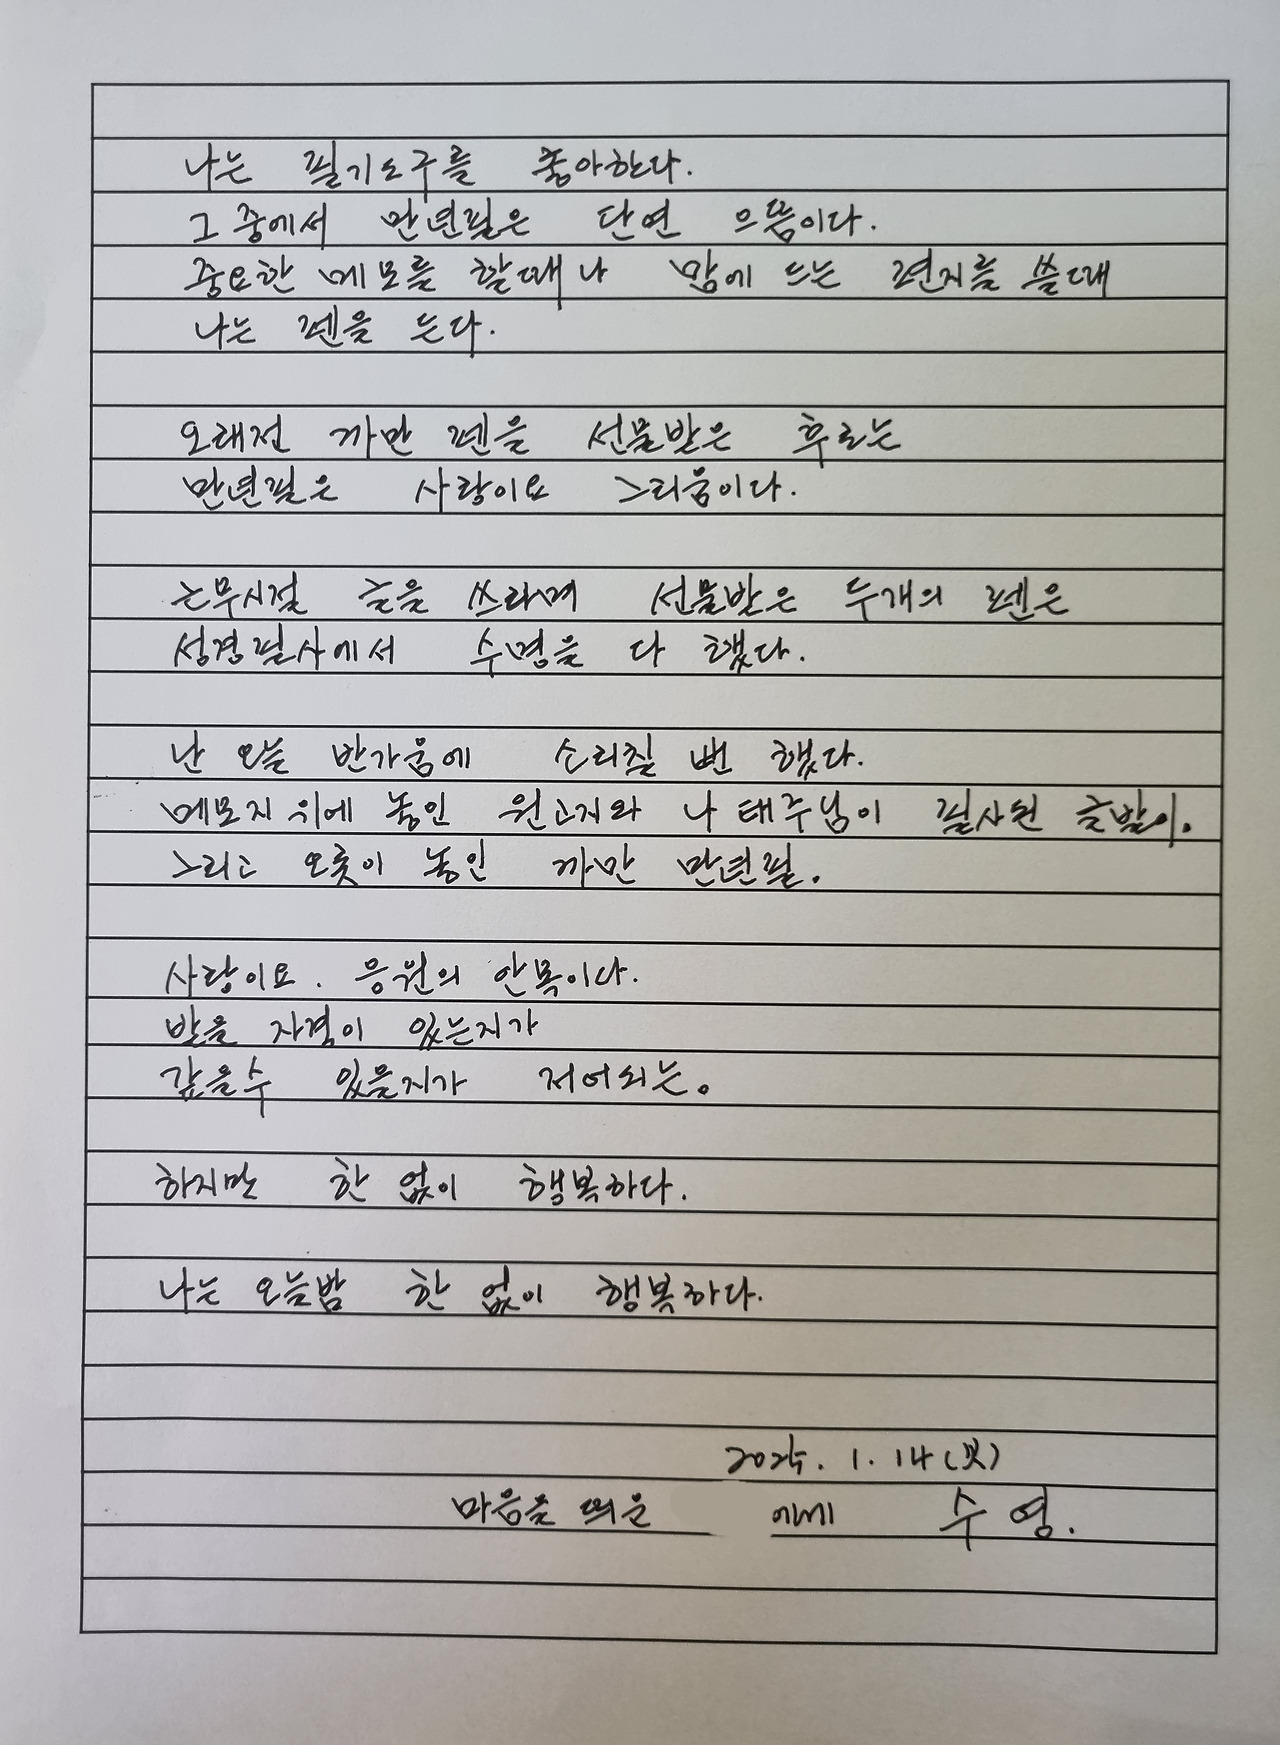 나는 필기도구를 좋아한다.
그 중에서 만년필은 단연 으뜸이다.
중요한 메모를 할때나 맘에 드는 편지를 쓸때
나는 펜을 든다.
오래전 까만 펜을 선물받은 후로는
만년필은 사랑이요 그리움이다.
근무시절 글을 쓰라며 선물받은 두개의 펜은
성경필사에서 수명을 다 했다.
난 오늘 반가움에 소리칠 뻔 했다.
메모지 위에 놓인 원고지와 나태주님이 필사된 글밭이.
그리고 오롯이 놓인 까만 만년필.
사랑이요. 응원의 안목이다.
받을 자격이 있는지가
갚을수 있을지가 저어되는.
하지만 한 없이 행복하다.
나는 오늘밤 한 없이 행복하다.
2025. 1. 14(화)
마음을 띄운 에게 수영.